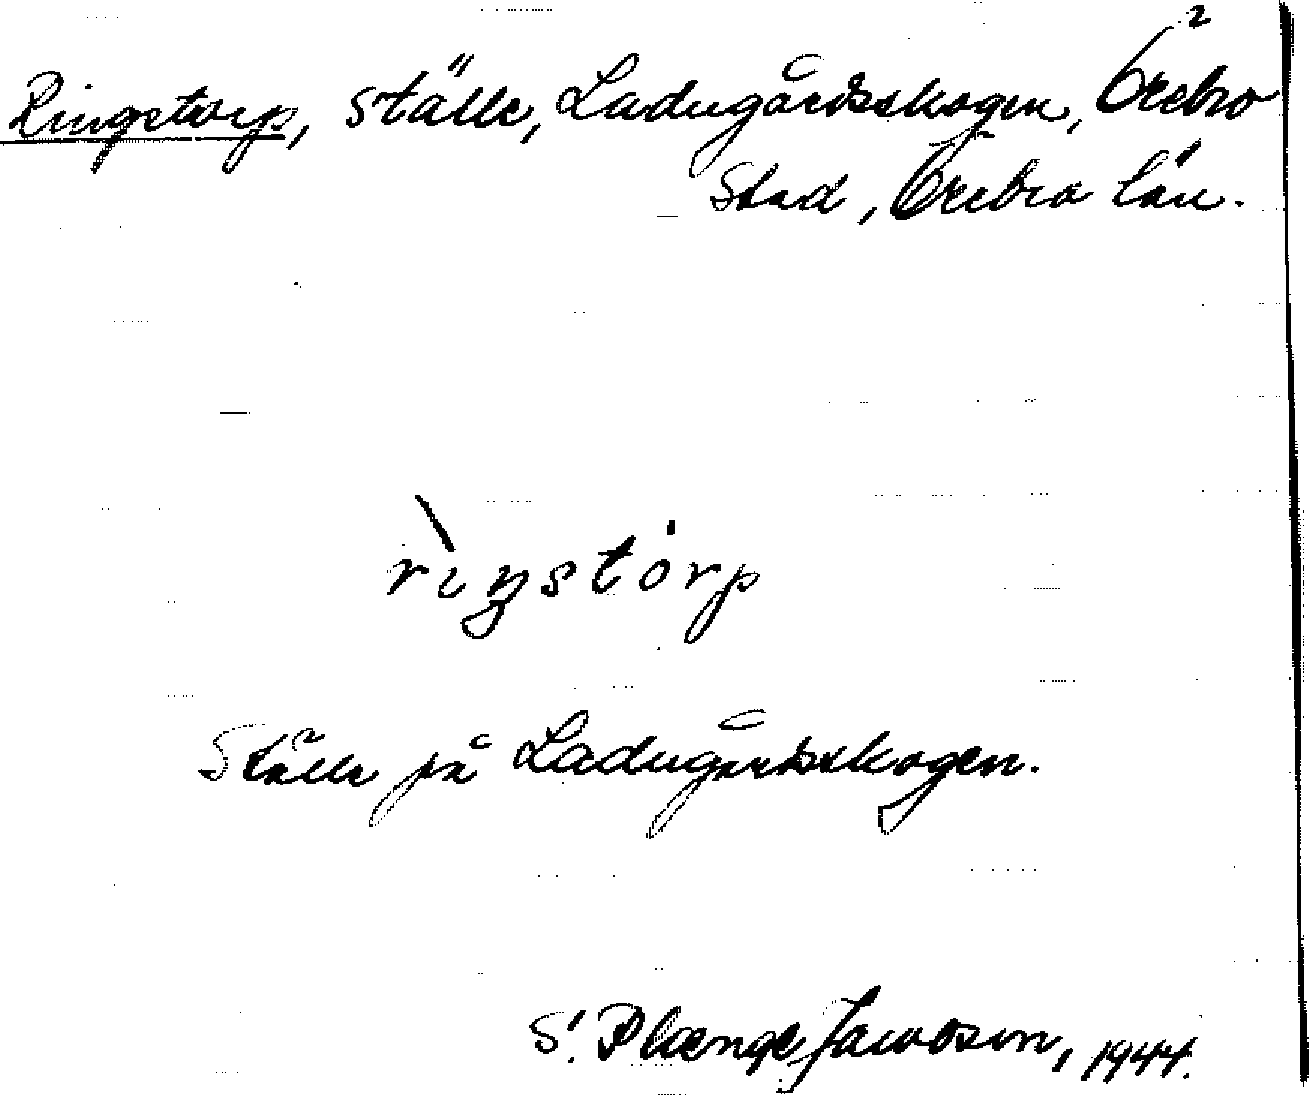 Ringstorp, ställe, Ladugårdsskogen, Örebro
Stad, Örebro län.
rìŋstórp
Ställe på Ladugårdsskogen.
S. Plænge Jacobson, 1944.